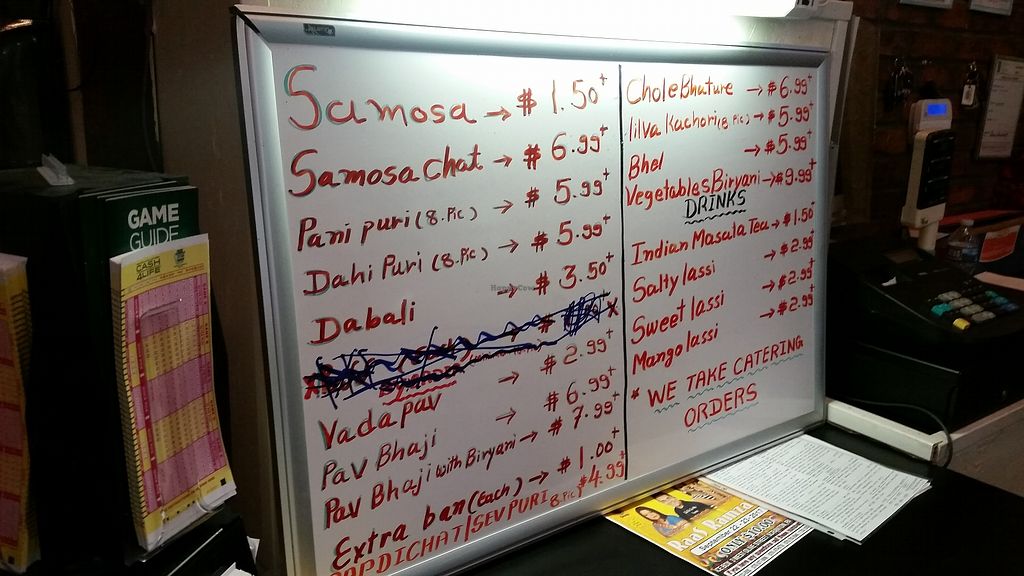 Samosa → $ 1.50+
Samosa Chat → $ 6.99+
Pani puri (8.Pic) → $ 5.99+
Dahi Puri (8.Pic) → $ 5.99+
Dabali → $ 3.50+
Vada pav → $ 2.99+
Pav Bhaji → $ 6.99+
Pav Bhaji with Biryani → $ 7.99+
Extra ban (Each) → $ 1.00+
PAPDICHAT/SEVPURI 8.Pic $4.99+
CholeBhature → $6.99+
lilva Kachori (8 Pic) → $5.99+
Bhel → $5.99+
Vegetables Biryani → $9.99+
DRINKS
Indian Masala Tea → $1.50+
Salty lassi → $2.99+
Sweet lassi → $2.99+
Mango lassi → $2.99+
* WE TAKE CATERING
ORDERS
GAME
GUIDE
CASH
4LIFE
Raas Ramzat
September
GOLD STONE
HappyCow